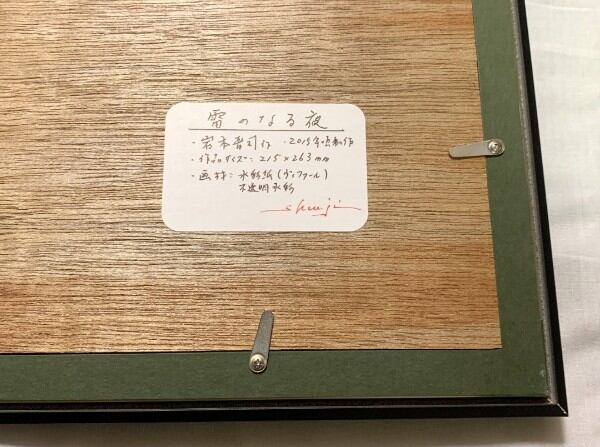 雷のなる夜
・岩本晋司作 ・2015年頃制作
・作品サイズ: 215×263mm
・画材: 水彩紙(ヴィファール)
不透明水彩
shinji